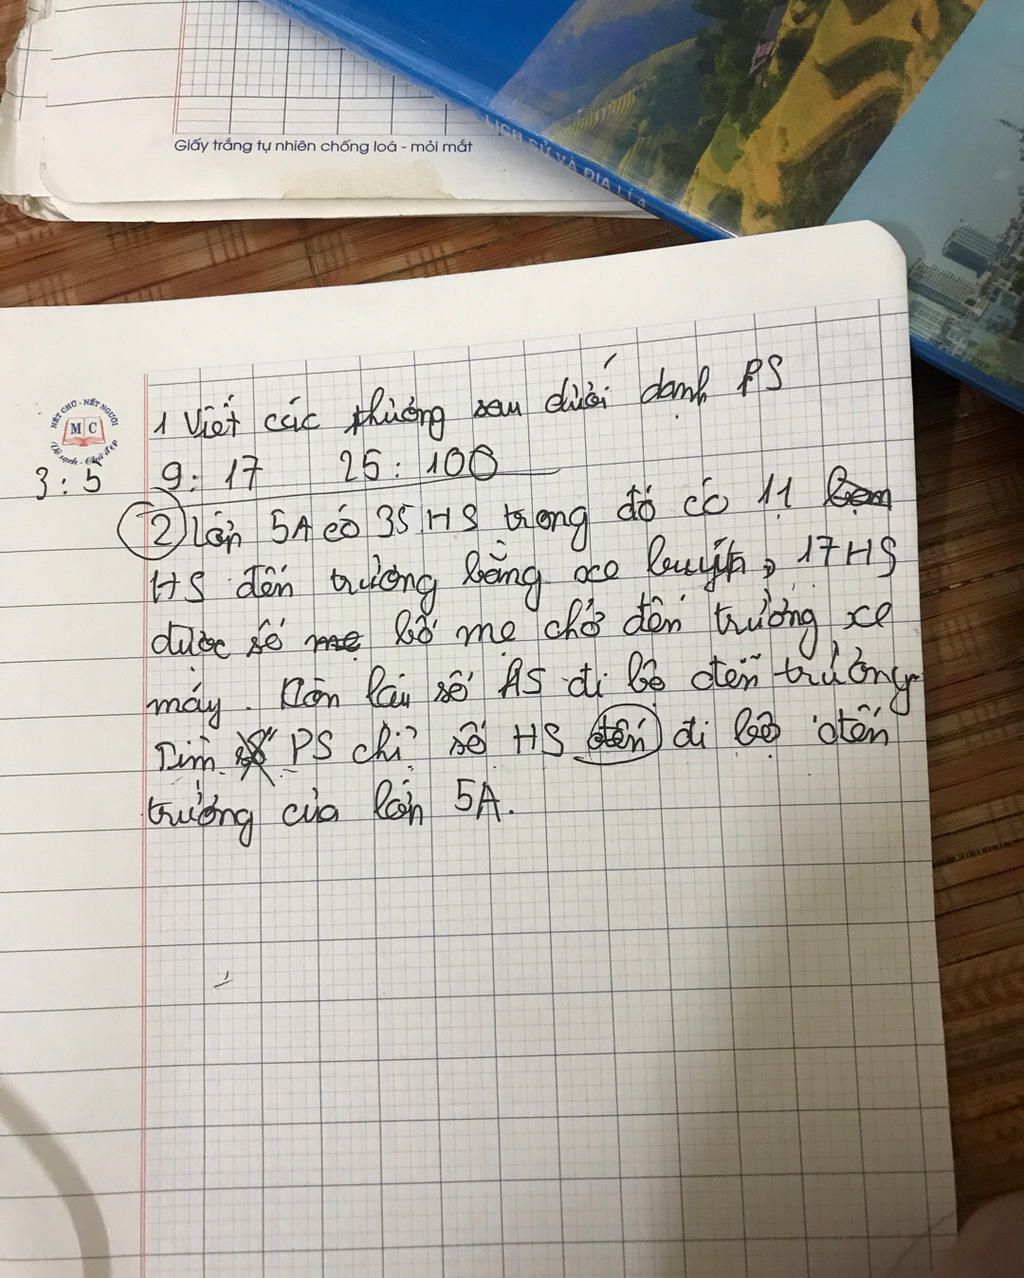 Giấy trắng tự nhiên chống loá - mỏi mắt
LỊCH SỬ VÀ ĐỊA LÍ 4
NÉT CHỮ - NẾT NGƯỜI
M C
Vở sạch - Chữ đẹp
1 Viết các thương sau dưới dạnh PS
3 : 5 9 : 17 25 : 100
2 Lớp 5A có 35 HS trong đó có 11
HS đến trường bằng xe buýt, 17 HS
được số bố mẹ chở đến trường xe
máy. Còn lại số HS đi bộ đến trường
Tìm PS chỉ số HS đến đi bộ đến
trường của lớp 5A.